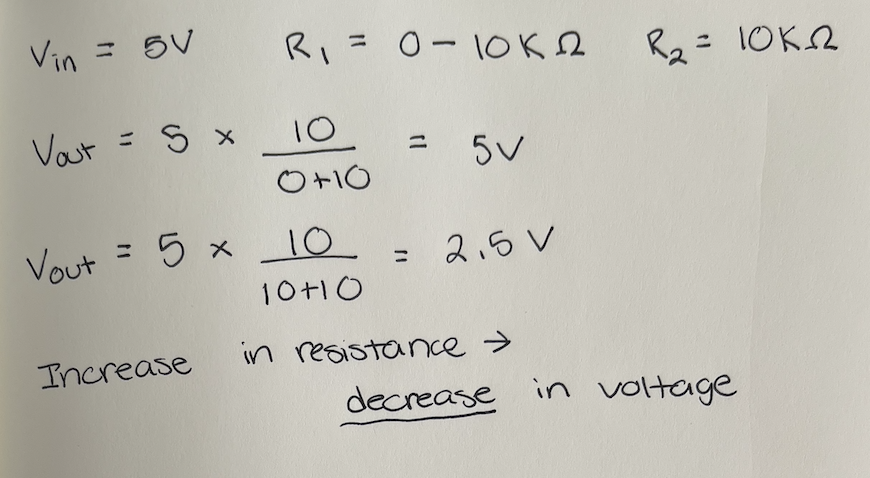 Vin = 5V R1 = 0 - 10KΩ R2 = 10KΩ
Vout = 5 × 10/(0+10) = 5V
Vout = 5 × 10/(10+10) = 2.5 V
Increase in resistance →
decrease in voltage